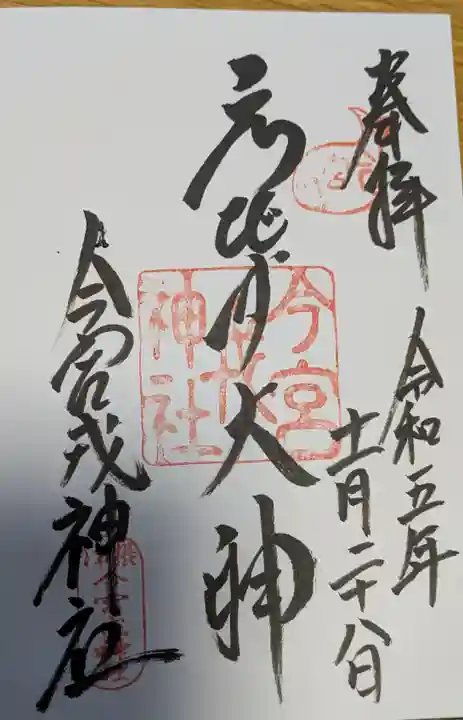 奉拝
令和五年
十一月二十八日
えびす大神
今宮戎神社
今宮
戎
神社